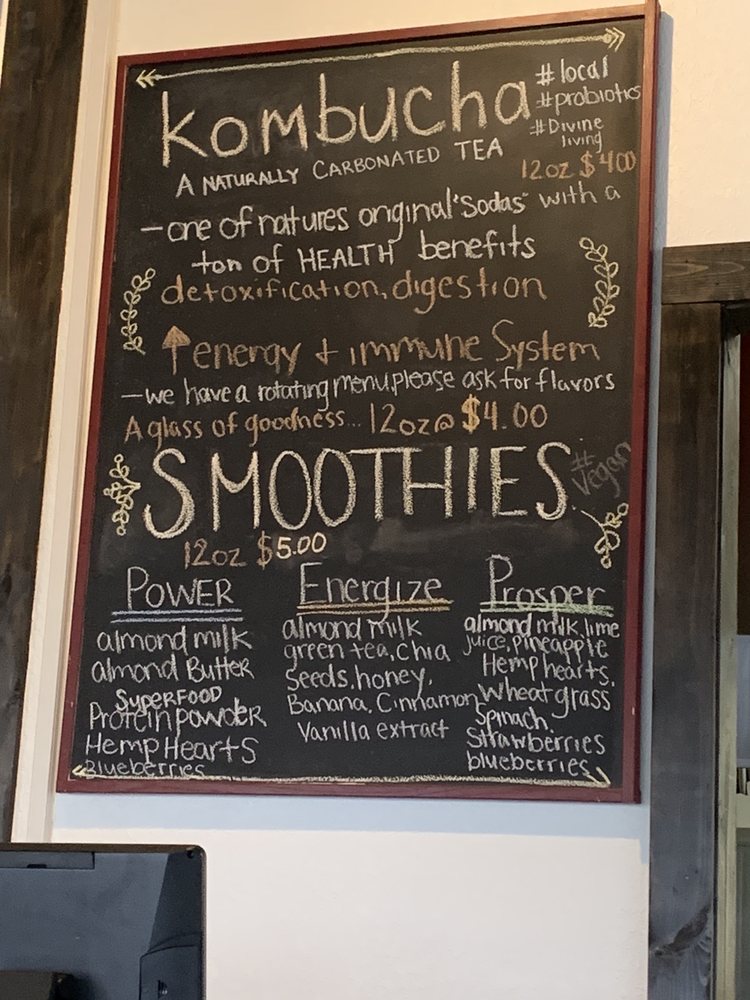 kombucha
#local
#probiotics
#Divine
living
A NATURALLY CARBONATED TEA
12oz $400
-one of natures original "Sodas" with a
ton of HEALTH benefits
detoxification, digestion
↑ energy + immune System
-we have a rotating menu, please ask for flavors
A glass of goodness... 12oz@ $4.00
SMOOTHIES
#Vegan
12oz $5.00
POWER
almond milk
almond Butter
SUPERFOOD
Protein powder
Hemp Hearts
Blueberries
Energize
almond milk
green tea, Chia
Seeds, honey,
Banana, Cinnamon
Vanilla extract
Prosper
almond milk, lime
juice, pineapple
Hemp hearts,
wheat grass
Spinach,
Strawberries
blueberries